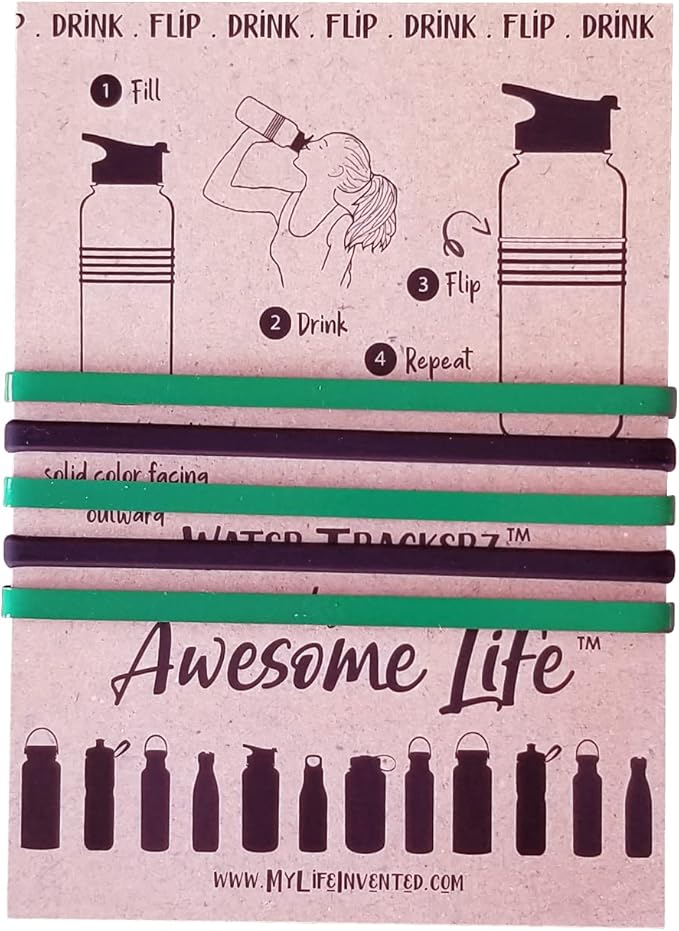 . DRINK . FLIP . DRINK . FLIP . DRINK . FLIP . DRINK
1 Fill
3 Flip
2 Drink
4 Repeat
solid color facing
outward
WATER TRACKERZ™
Awesome Life™
WWW.MYLIFEINVENTED.COM